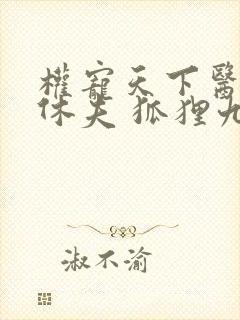 權寵天下醫
休夫 狐狸九
淑不渝